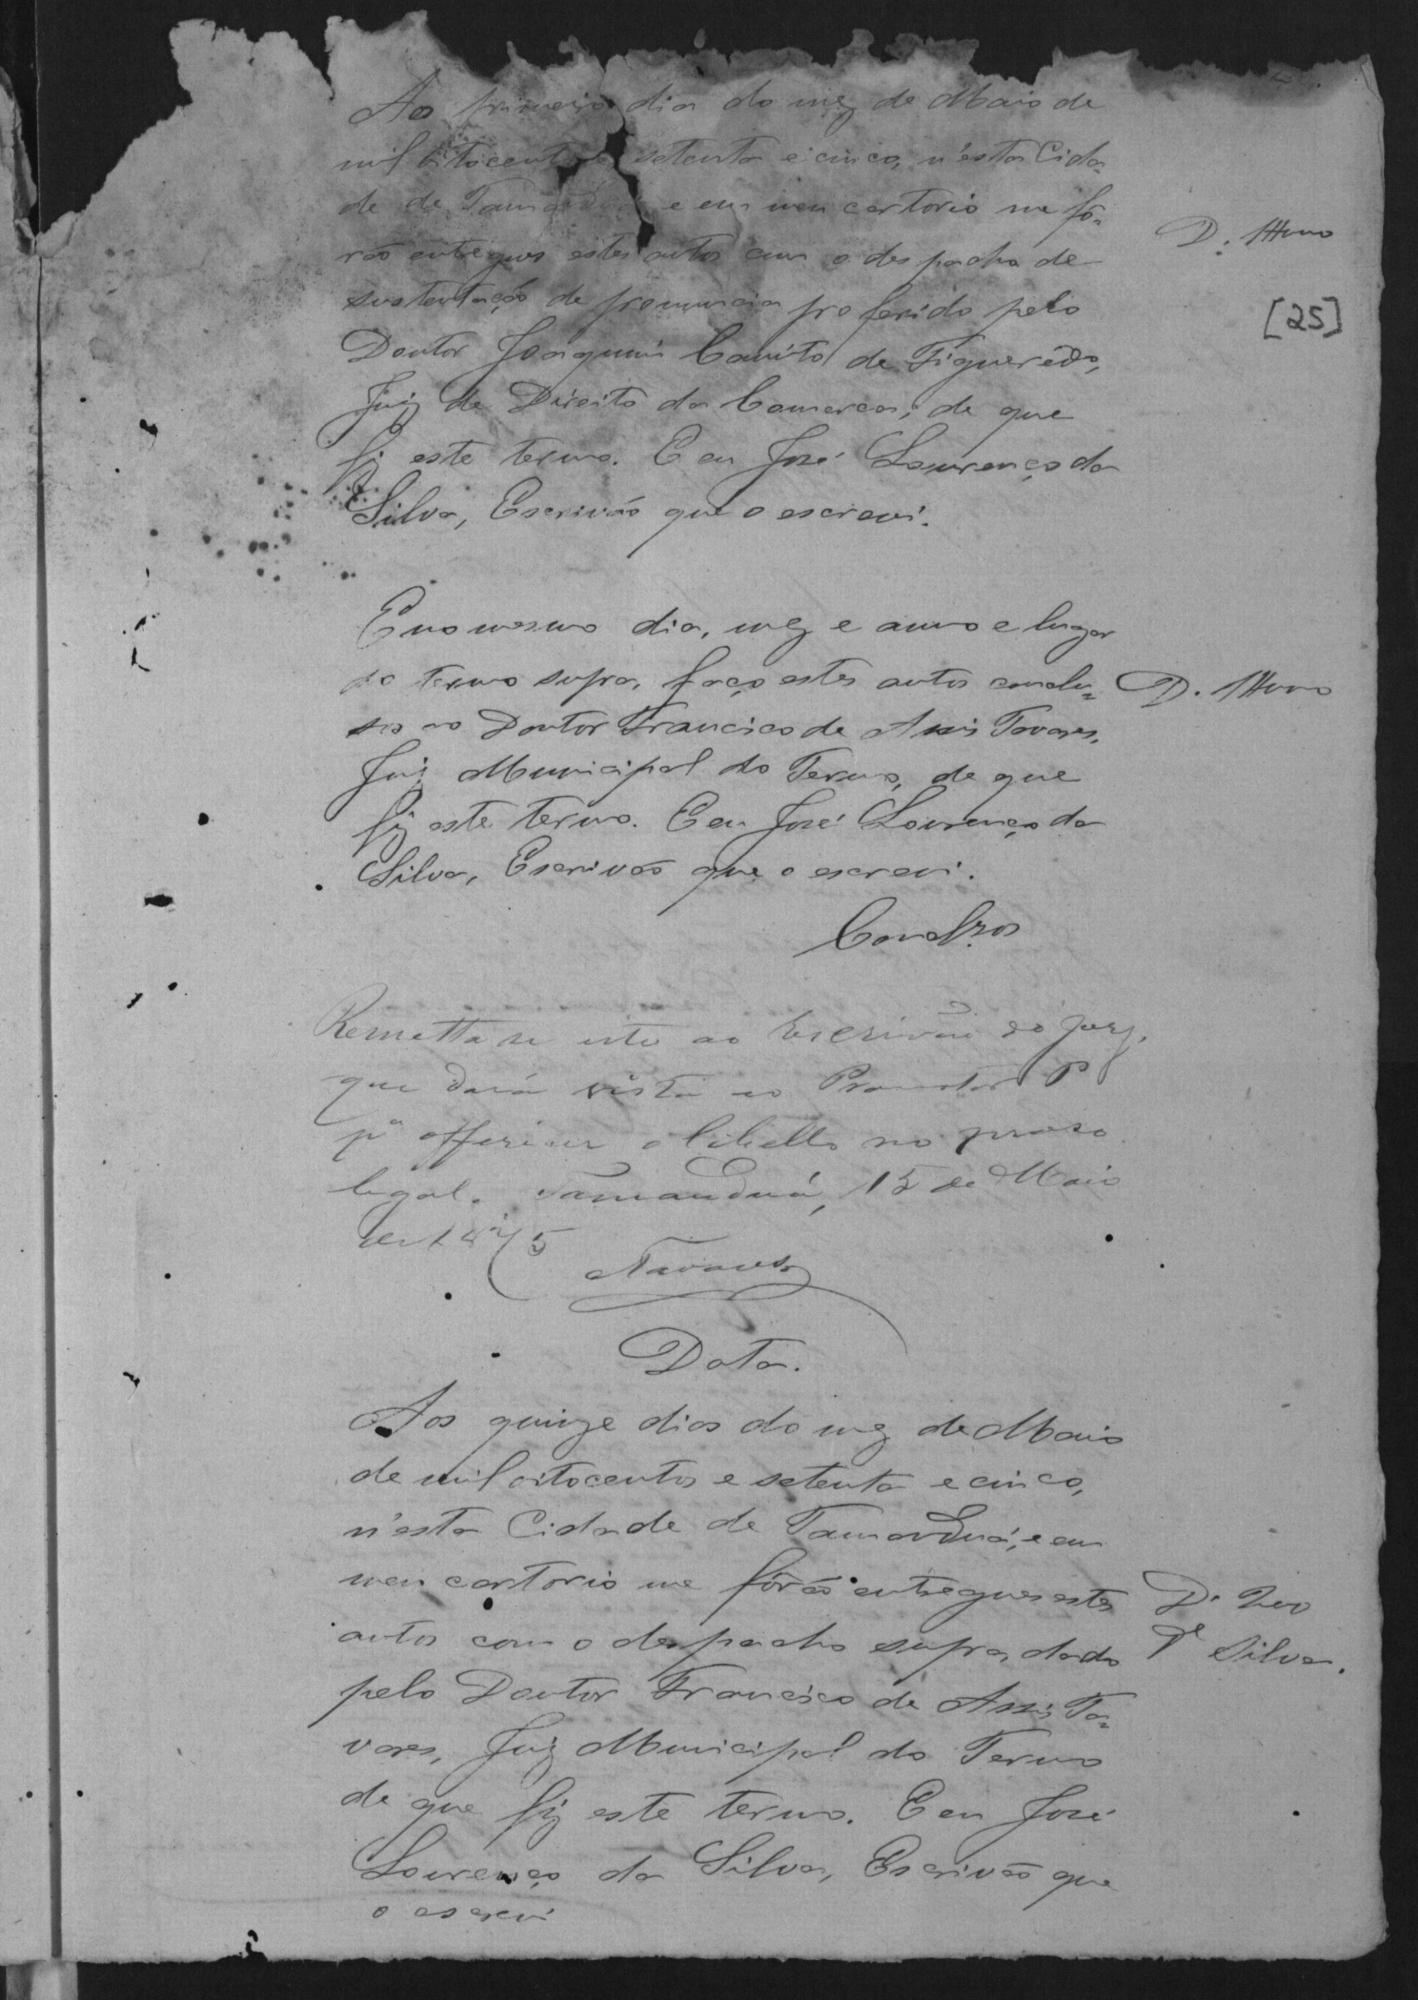 Ao primeiro dia do mez de Maio de
mil oitocentos e setenta e cinco, n'esta Cida-
de de Tamanduá e em meu cartorio me fô-
rão entregues estes autos com o despacho de
sustentação de pronuncia proferido pelo
Doutor Joaquim de Figuerêdo,
Juiz de Direito da Comarca; de que
fiz este termo. E eu José Lourenço da
Silva, Escrivão que o escrevi.
D.
[25]
E no mesmo dia, mez e anno e lugar
do termo supra, faço estes autos conclu-
sos ao Doutor Francisco de Assis Tavares,
Juiz Municipal do Termo, de que
fiz este termo. E eu José Lourenço da
Silva, Escrivão que o escrevi.
D.
Conclzos
Remetta se este ao Escrivão do Jury,
que dará vista ao Promotor P
pª offerecer o libello no praso
legal. Tamanduá, 15 de Maio
de 1875
Tavares
Data.
Aos quinze dias do mez de Maio
de mil oitocentos e setenta e cinco,
n'esta Cidade de Tamanduá, e em
meu cartorio me fôrão entregues estes
autos com o despacho supra, dado
pelo Doutor Francisco de Assis Ta-
vares, Juiz Municipal do Termo
de que fiz este termo. E eu José
Lourenço da Silva, Escrivão que
o escrevi
D.
Silva.